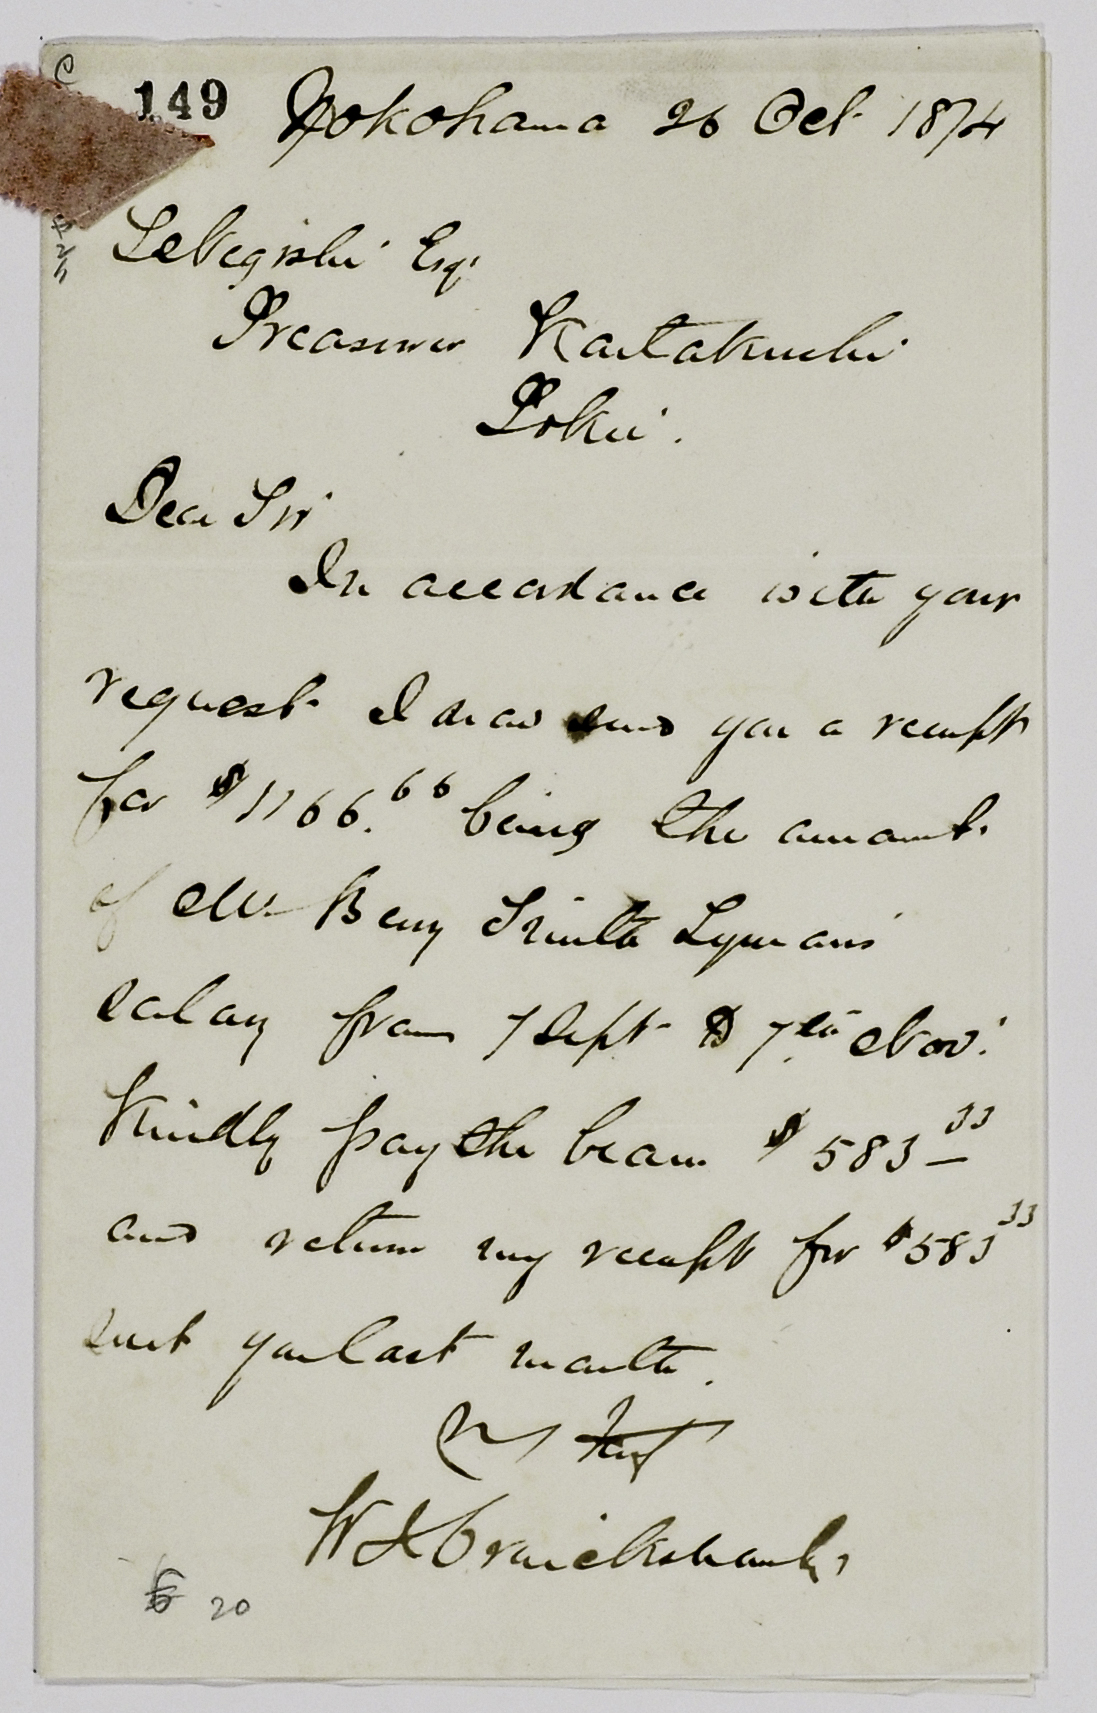 149 Yokohama 26 Oct 1874
Sekegishi Esqr
Treasurer Kaitakushi
Tokei.
Dear Sir
In accordance with your
request I now send you a receipt
for $1166.66 being the amount
of Mr Benj Smith Lyman's
salary from 7 Sept to 7th Nov.
Kindly pay the bearer $583 33
and return my receipt for $583 33
sent you last month.
Yrs truly
W J Cruickshank
20